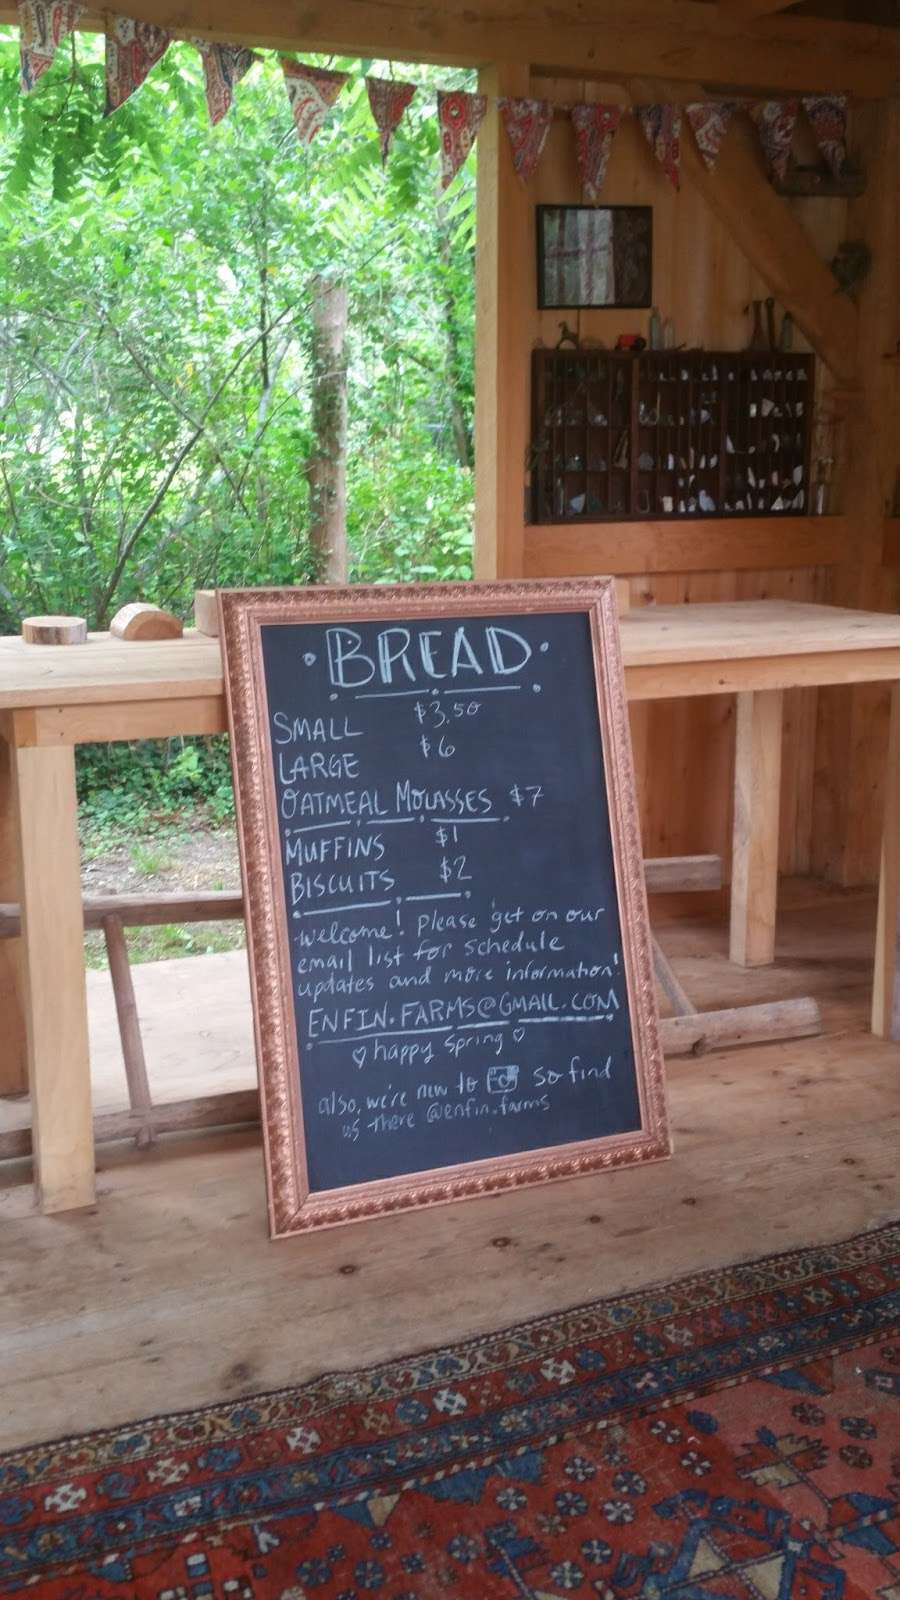 BREAD
SMALL $3.50
LARGE $6
OATMEAL MOLASSES $7
MUFFINS $1
BISCUITS $2
welcome! Please get on our
email list for schedule
updates and more information!
ENFIN.FARMS@GMAIL.COM
♡ happy spring ♡
also, we're new to so find
us there @enfin.farms